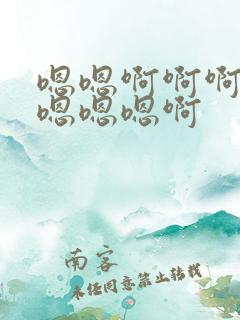 嗯嗯啊啊啊
嗯嗯嗯啊
南客
未经同意禁止转载